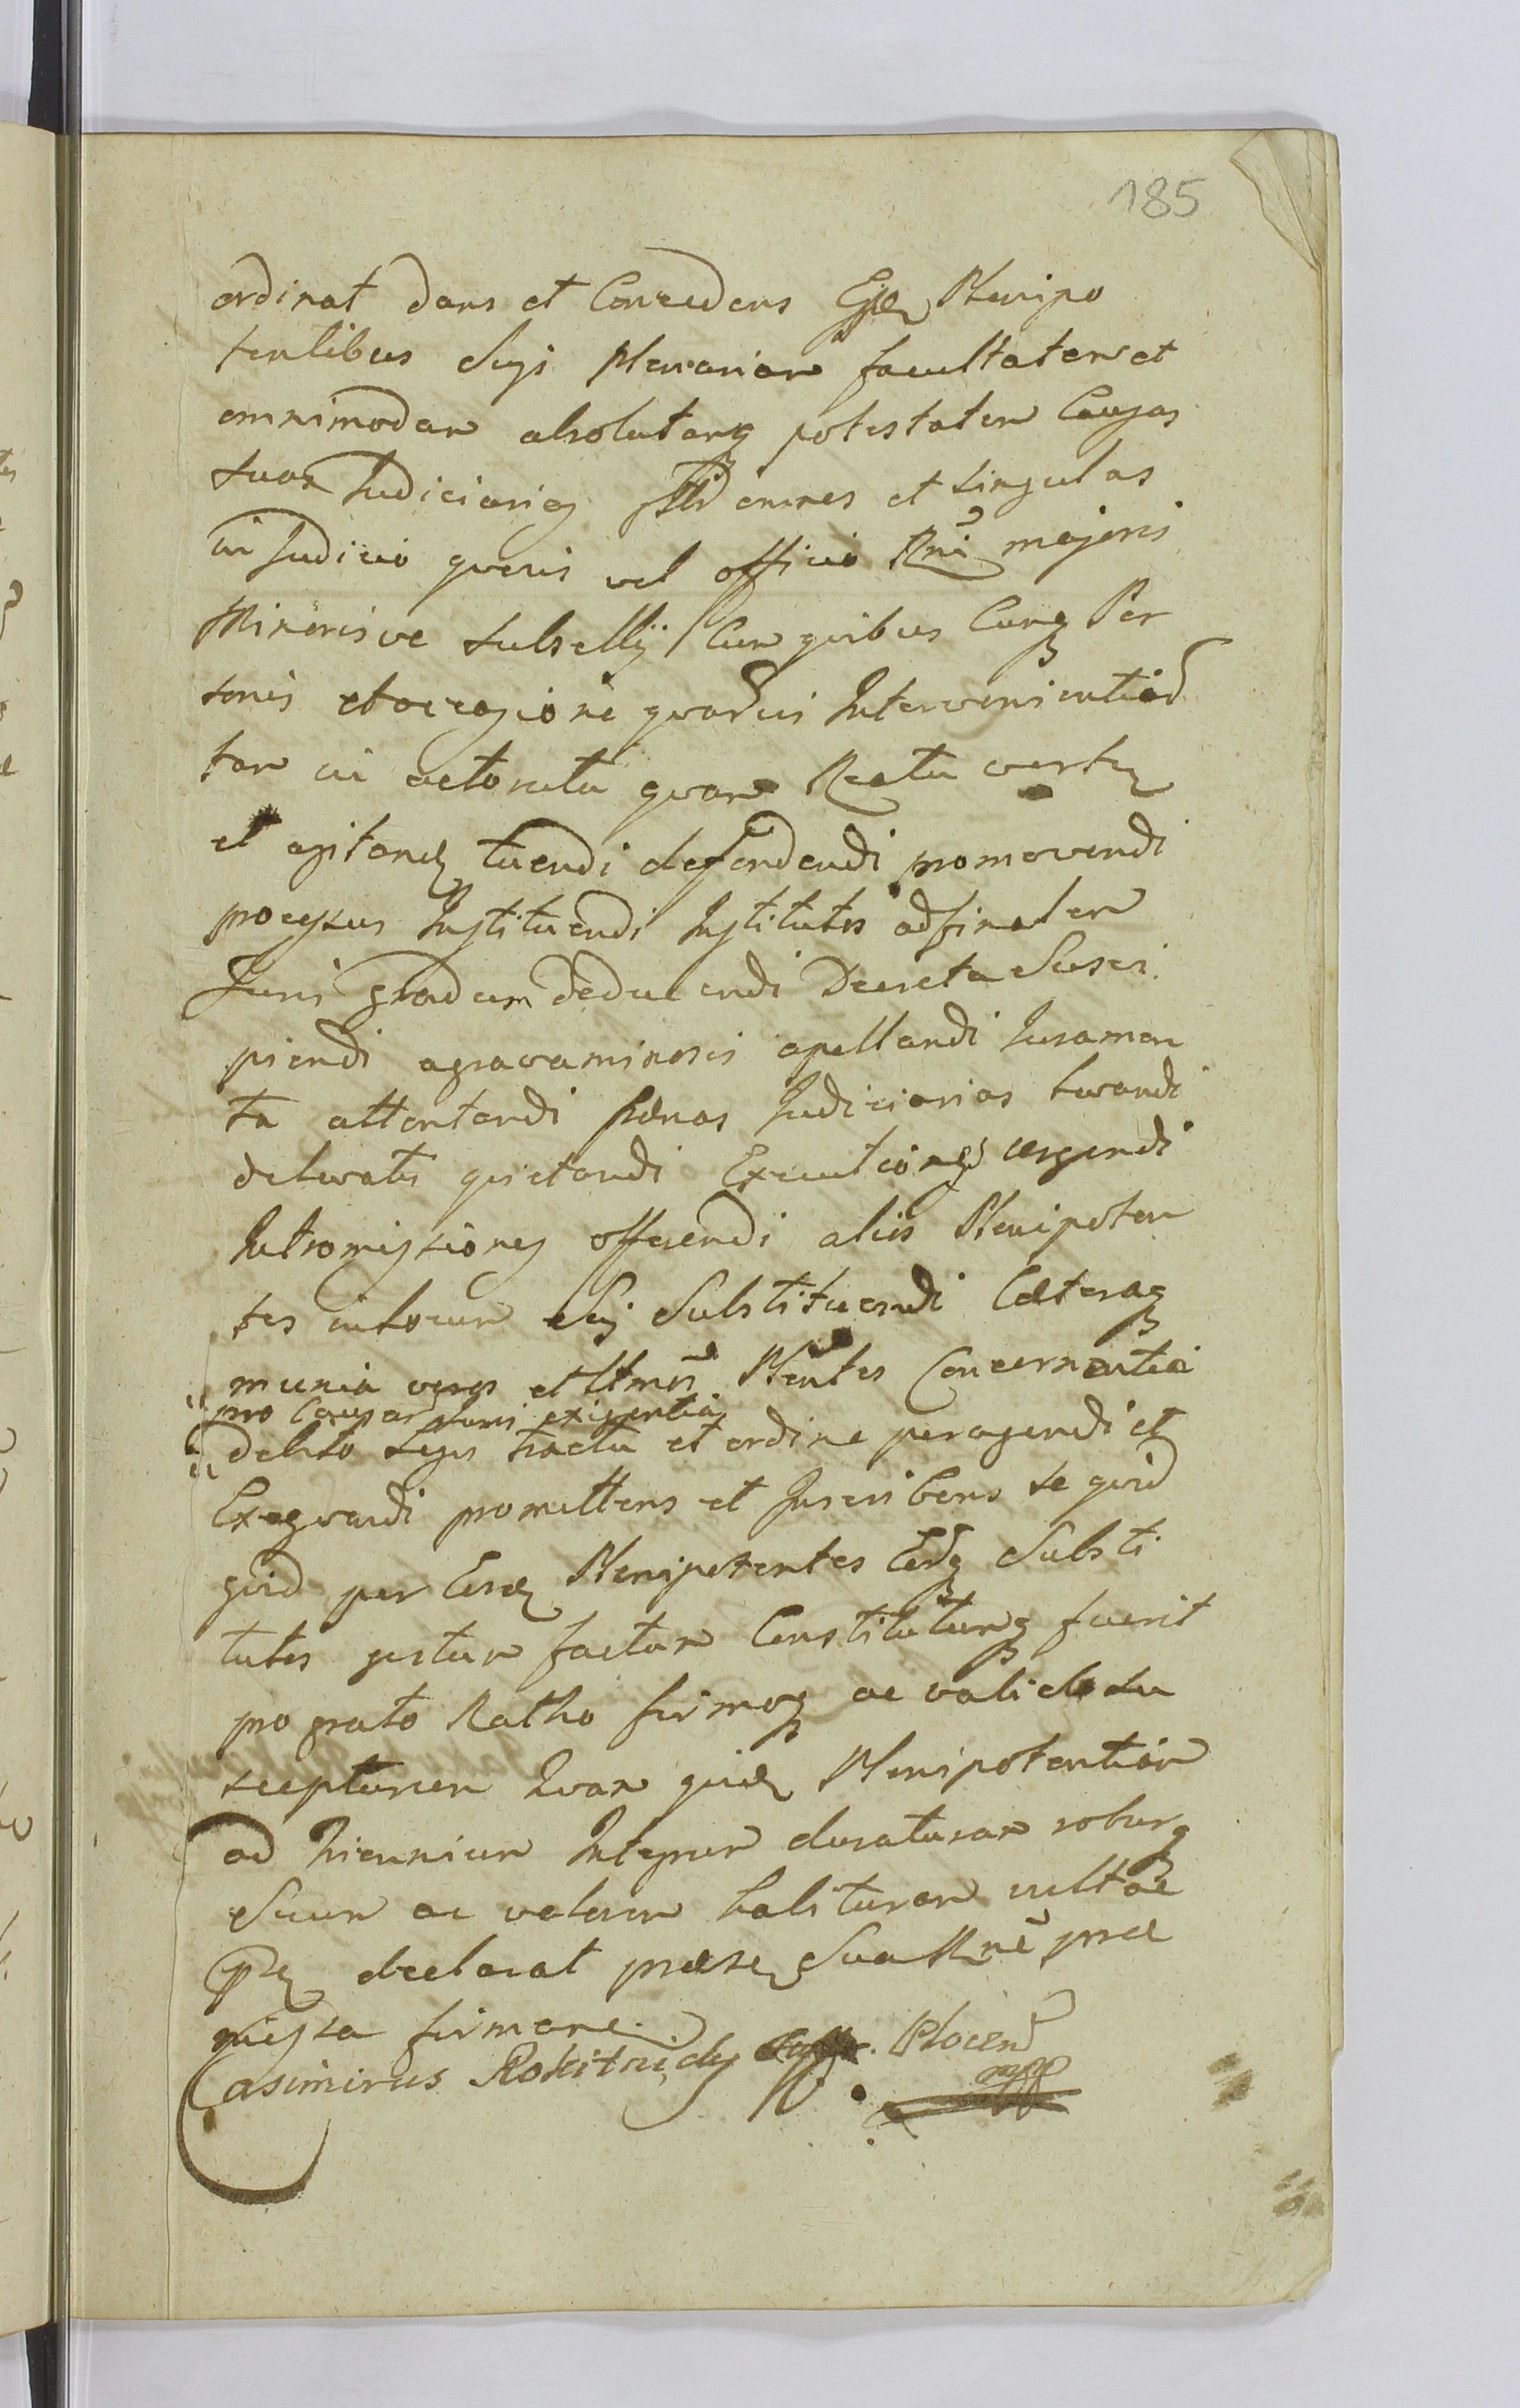 185
ordinat dans et Concedens Ejsd Plenipo
tentibus Suis plenariam facultatem et
omnimodam absolutamq potestatem Causas
suas Judiciarias omnes et singulas
in Judicio quovis vel officio Rni majoris
Minorisve subsellij Cum quibus Cunq Per
sonis et occasione quarvis Intervenientiar
tam in actoratu quam Reatu vert
et agitand tuendi defendendi promovendi
processus Instituendi Institutos ad finalem
Juris gradum deducendi Decreta Susci
piendi agravaminosis apellandi Juramen
ta attentandi pænas Judiciarias luvandi
delevatis quietandi Executiones urgendi
Intromissiones offerendi alios Plenipoten
tes in locum Sui Substituendi Cæteraq
munia veros et Ltmos Plentes Concernentia
pro Causar Juris exigentia
debito Legis tractu et ordine peragendi et
Exequendi promittens et Inscribens se quid
quid per Eosd Plenipotentes Eorq Substi
tutos gestum factum Constitutumq fuerit
pro grato Ratho firmoq ac valido su
scepturum Quam quid Plenipotentiam
ad triennium Integrum duraturam roburq
Suum ac valorem habituram vult ac
declarat præsen Sua Mne præ
missa firmare
Casimirus Rokitnicki Plocen
mpp